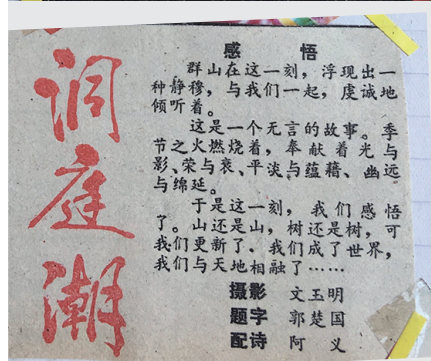 洞庭潮
感悟
群山在这一刻，浮现出一
种静穆，与我们一起，虔诚地
倾听着。
这是一个无言的故事。季
节之火燃烧着，奉献着光与
影、荣与衰、平淡与蕴藉、幽远
与绵延。
于是这一刻，我们感悟
了。山还是山，树还是树，可
我们更新了、我们成了世界，
我们与天地相融了……
摄影 文玉明
题字 郭楚国
配诗 阿义